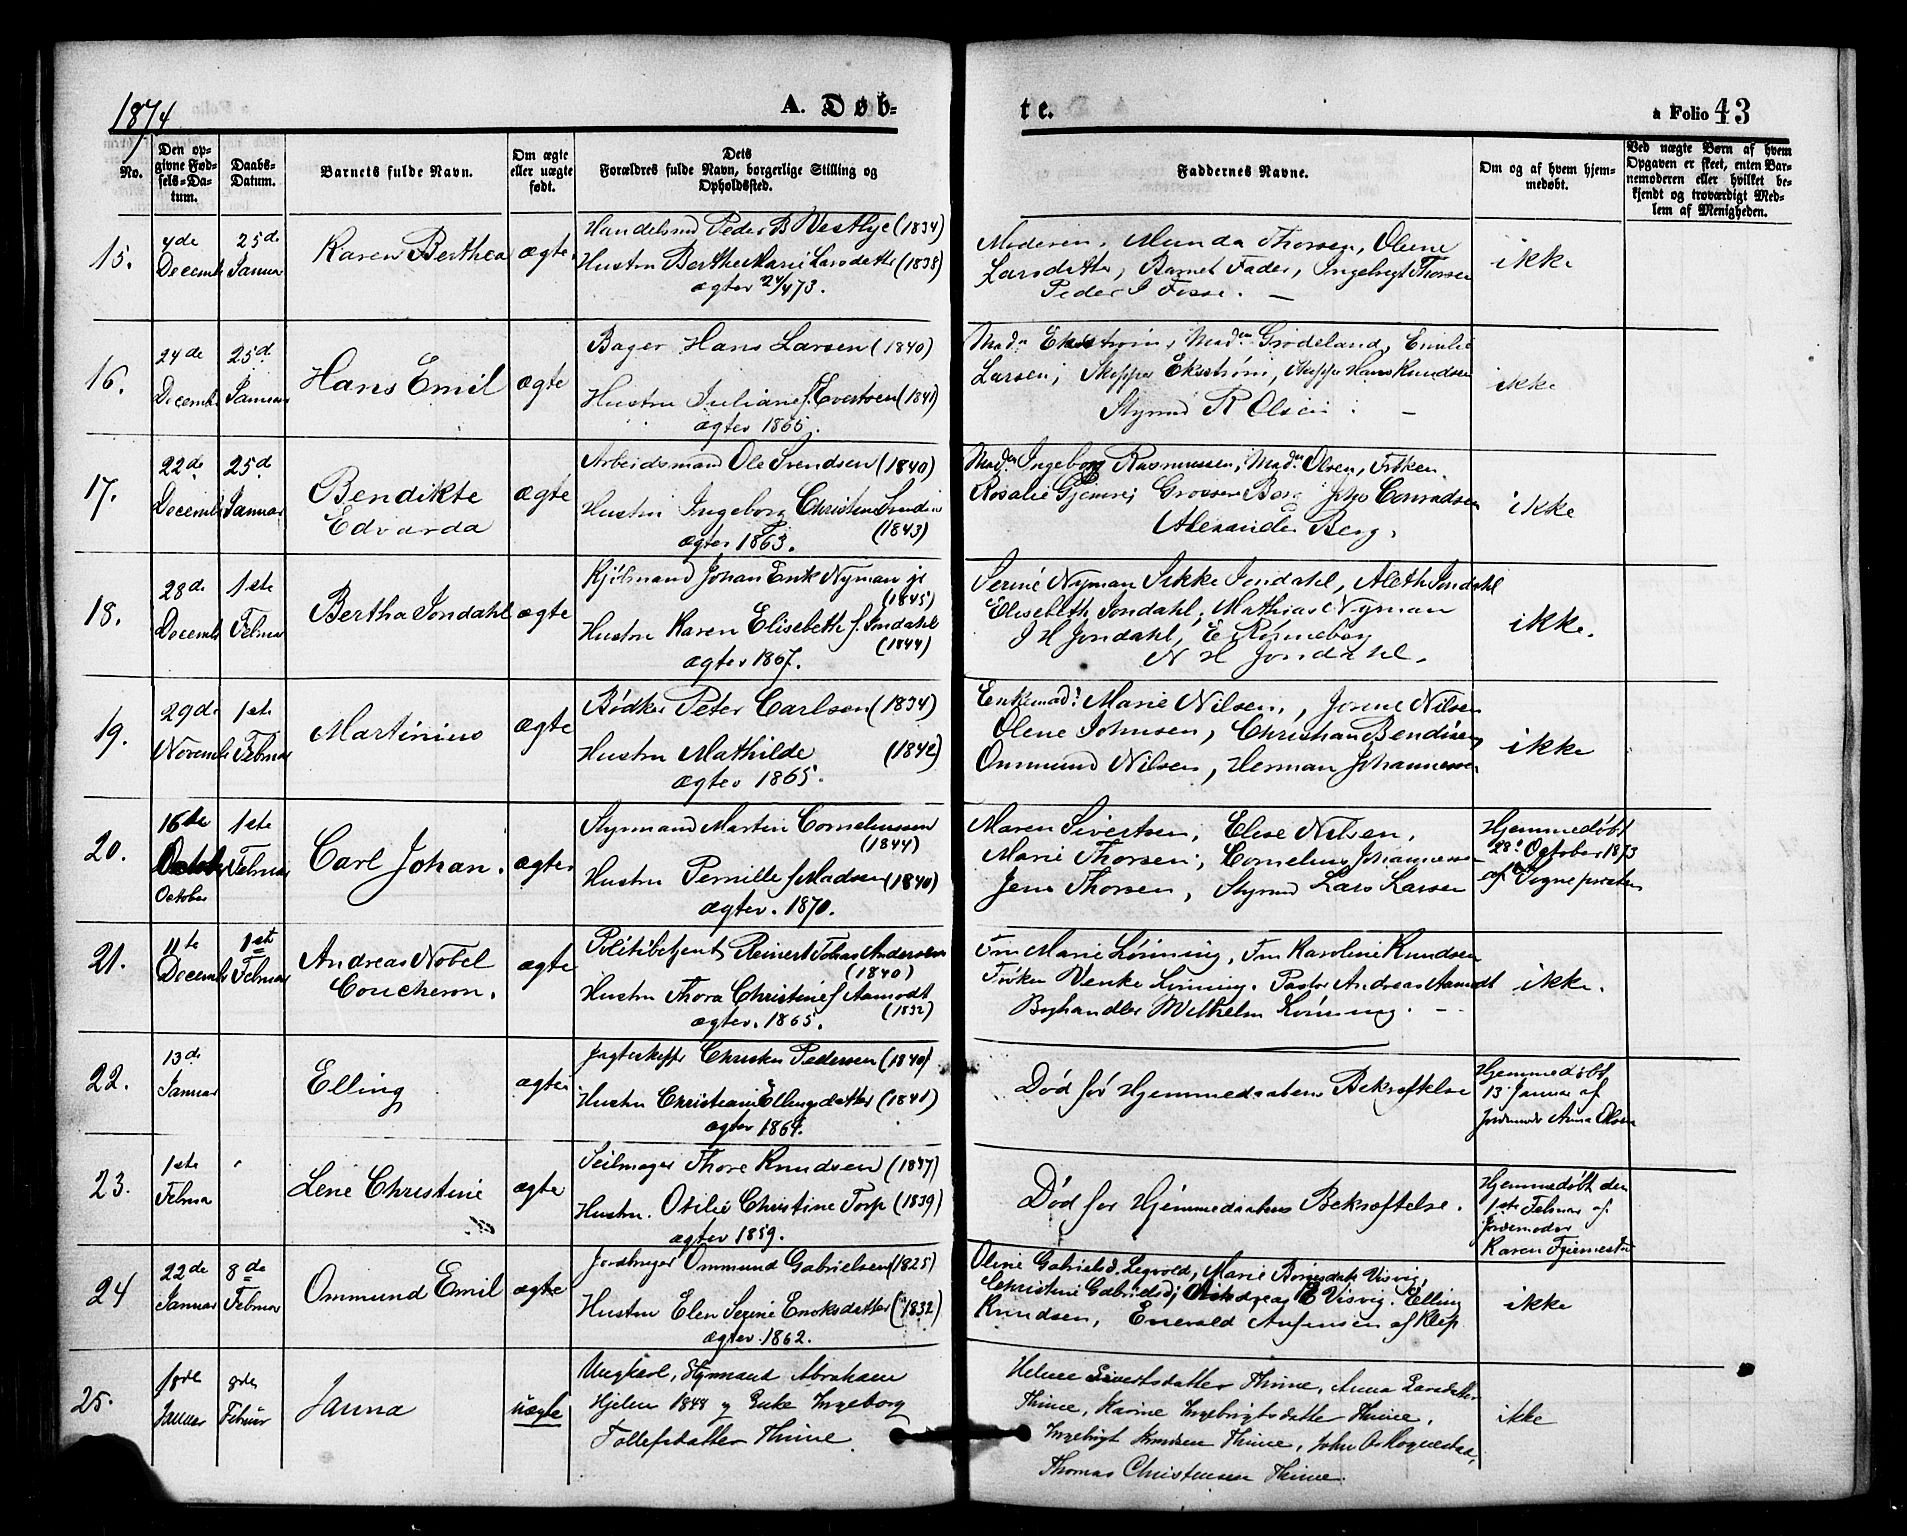 1874
A. Døb-
te.
a Folio 43
No.
Den op-
givne Fød-
sels-Da-
tum.
Daabs-
Datum.
Barnets fulde Navn.
Om ægte
eller uægte
født.
Dets
Forældres fulde Navn, borgerlige Stilling og
Opholdssted.
Faddernes Navne.
Om og af hvem hjem-
medøbt.
Ved uægte Børn af hvem
Opgaven er skeet, enten Bar-
nemoderen eller hvilket be-
kjendt og troværdigt Med-
lem af Menigheden.
15.
4de
Decemb
25de
Januar
Karen Berthea
ægte
Handelsmd Peder B Westlye (1834)
Hustru Berthe Marie Larsdatter (1838)
ægtev 24/4 73.
Moderen, Munda Thorsen, Olene
Larsdatter, Barnets Fader, Ingebrigt Thorsen
Peder J Fosse. —
ikke
16.
24de
Decemb
25d
Januar
Hans Emil
ægte
Bager Hans Larsen (1840)
Hustru Juliane f. Evertsen (1841)
ægtev 1865.
Mad. Ekstrøm, Mad. Grødeland, Emilie
Larsen, Skipper Ekstrøm, Skipper Hans Knudsen
Styrmd R Olsen. —
ikke
17.
22de
Decemb
25d
Januar
Bendikte
Edvarda
ægte
Arbeidsmand Ole Svendsen (1840)
Hustru Ingeborg Christine
(1843)
ægtev 1863.
Mad. Ingeborg Rasmussen, Mad. Olsen, Frøken
Rosalie Gjemre, Grosserer Berg Johs Conradsen
Alexander Berg.
ikke
18.
28de
Decemb
1ste
Februar
Bertha Jondahl
ægte
Kjølmand Johan Erik Nyman jr
(1845)
Hustru Karen Elisebeth f. Jondahl
(1844)
ægtev 1867.
Serine Nyman Sikke Jondahl, Aleth Jondahl
Elisebeth Jondahl, Mathias Nyman
J H Jondahl, E Rønneberg
N H Jondahl.
ikke.
19.
29de
Novemb
1ste
Februar
Martinius
ægte
Bødker Peter Carlson (1834)
Hustru Mathilde (1842)
ægtev 1865.
Enkemad. Marie Nilsen, Jorine Nilsen
Olene Johnsen, Christian Bendixen,
Ommund Nilsen, Herman Johannessen
ikke
20.
16de
October
October
1ste
Februar
Carl Johan.
ægte
Styrmand Martin Corneliussen
(1844)
Hustru Pernille f. Madsen (1840)
ægtev. 1870.
Maren Sivertsen, Elise Nilsen,
Marie Thorsen, Cornelius Johannessen
Jens Thorsen, Styrmd Lars Larsen
Hjemmedøbt
28. October 1873
af Sognepresten
21.
11te
Decemb
1ste
Februar
Andreas Nobel
Coucheron.
ægte
Politibetjent Reinert Tobias Andersen
(1840)
Hustru Thora Christine f Aamodt
(1832)
ægtev. 1865.
Fru Marie Lønning, Fru Karoline Knudsen
Frøken Wenke Lønning. Pastor Andreas Aamodt
Boghandler Wilhelm Lønning. —
ikke.
22.
13de
Januar
Elling
ægte
Jagteskipper Christen Pedersen (1840)
Hustru Christiane Ellingsdatter (1841)
ægtev 1864.
Død før Hjemmedaabens Bekræftelse
Hjemmedøbt
13 Januar af
Jordemoder Anna Olsen
23.
1ste
Februar
Lene Christine
ægte
Seilmager Thore Knudsen (1837)
Hustru. Otilie Christine Torp (1839)
ægtev 1859.
Død før Hjemmedaabens Bekræftelse.
Hjemmedøbt den
1ste Februar af
Jordemoder
Karen Fjermestad
24
22de
Januar
8de
Februar
Ommund Emil
ægte
Jordbruger Ommund Gabrielsen (1825)
Hustru Elen Serine Enoksdatter (1832)
ægtev. 1862.
Oline Gabrielsd. Legvold, Marie Visvig,
Christine Gabrielsd, Andreas E Visvig. Elling
Knudsen, Enevald Aufinsen af Klep.
ikke
25.
Januar
8de
Februar
Janna
uægte
Ungkarl, Styrmand Abraham
Hjelm 1844 og Enke Ingeborg
Tollefsdatter Thime.
Helene Sivertsdatter Thime, Anna Larsdatter
Thime, Karine Ingebrigtsdatter Thime,
Ingebrigt Knudsen Thime, John
Thomas Christensen Thime.
ikke